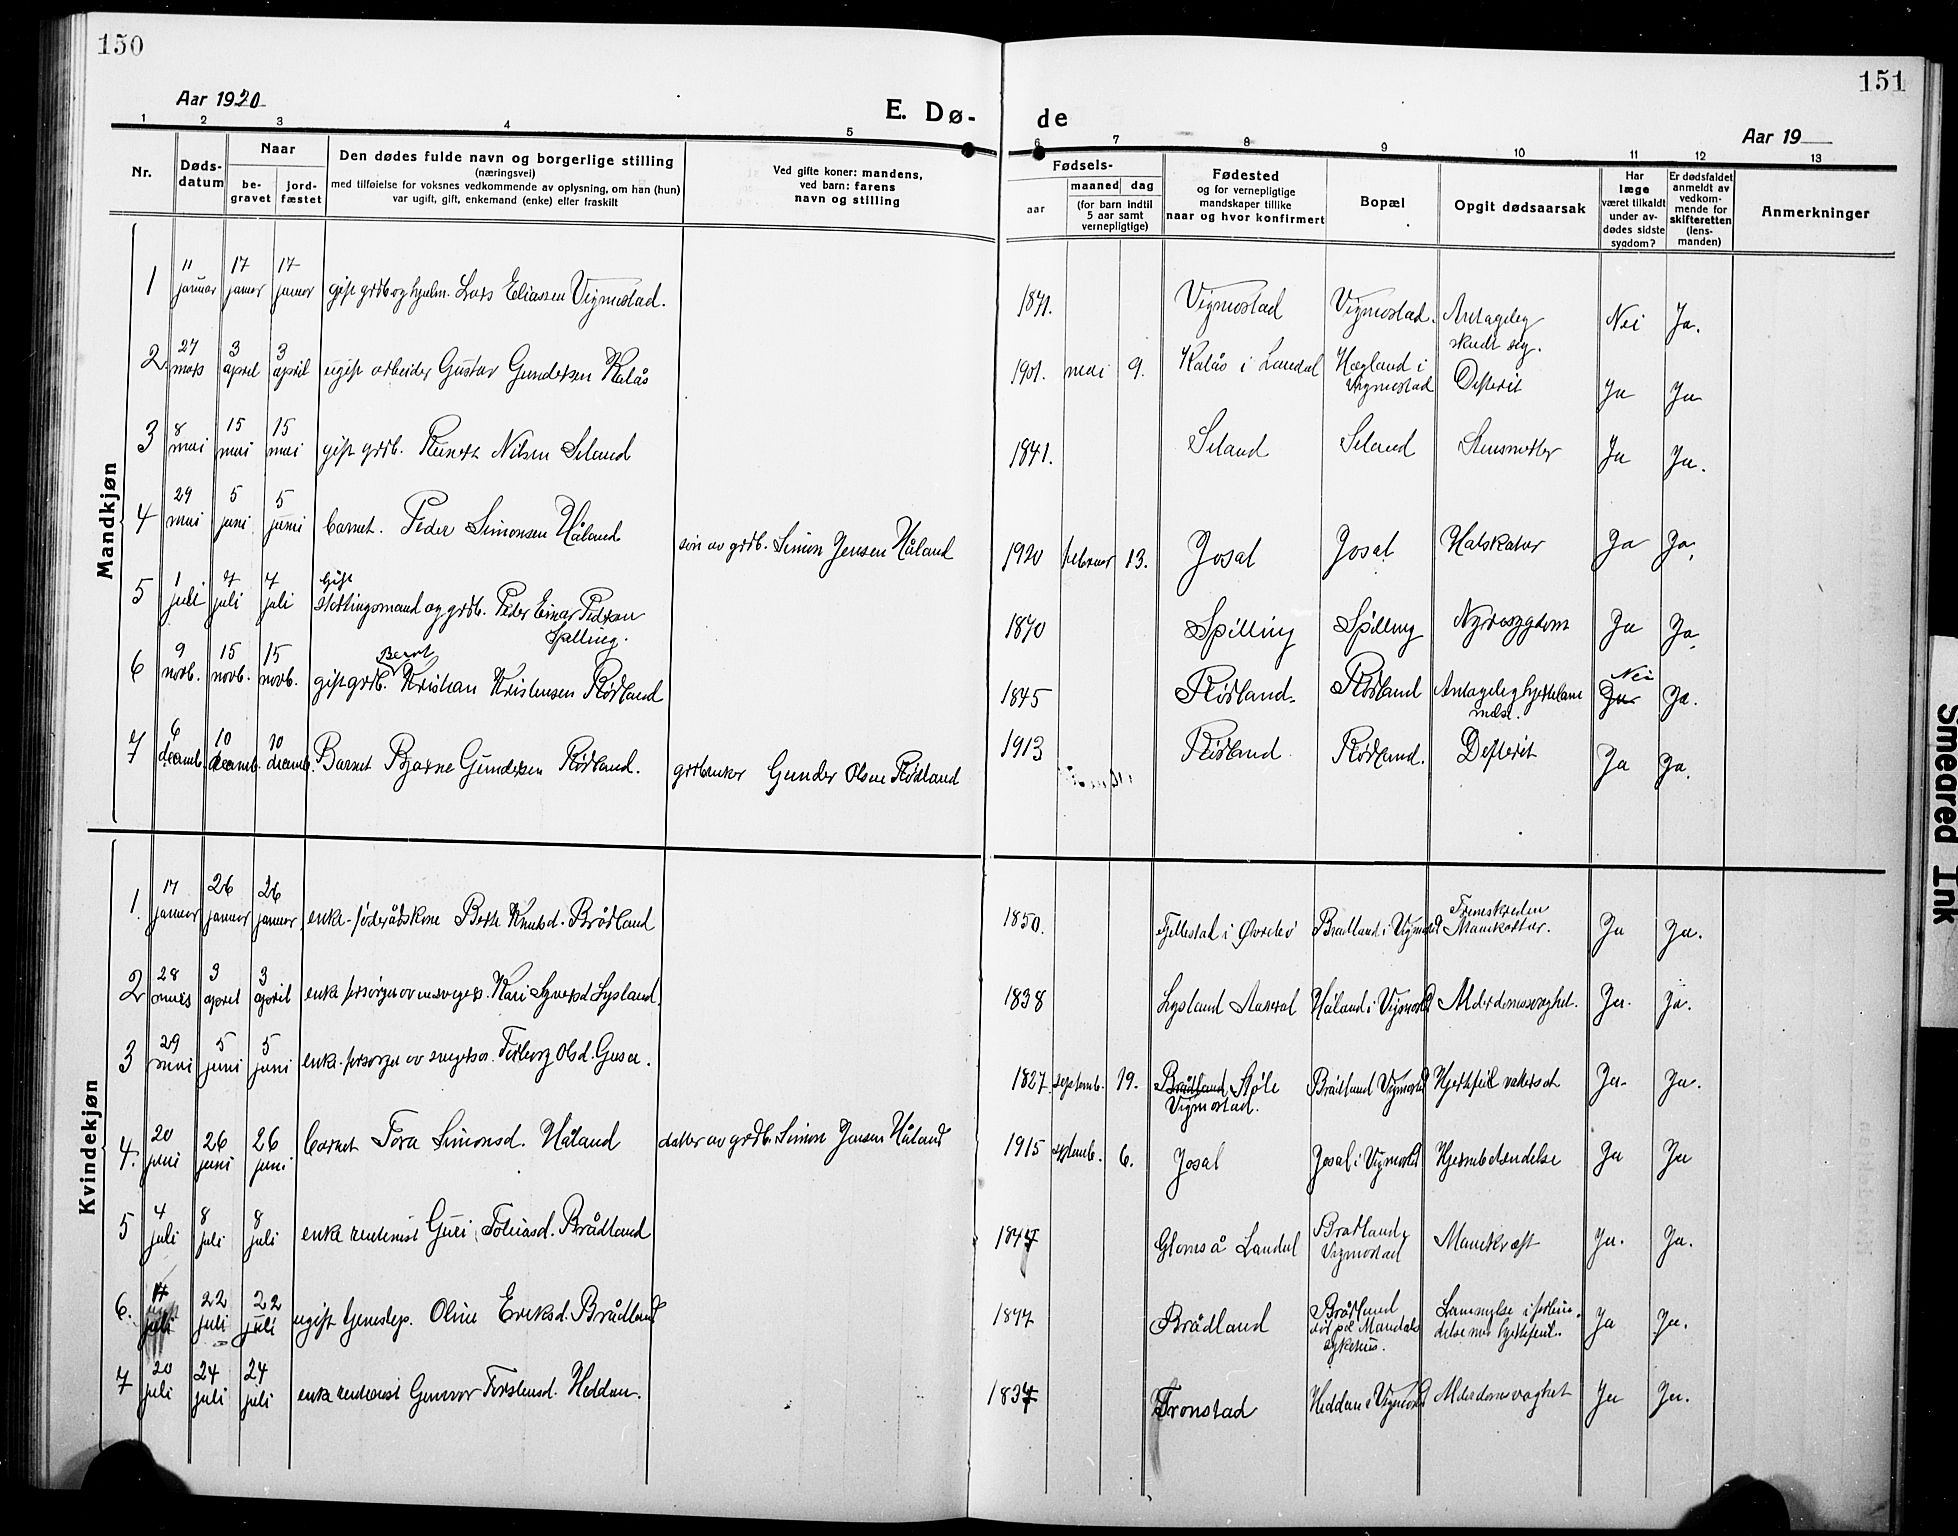 150
151
Aar 1920
E. Dø-
de
Aar 19
1 2 3 4 5 6 7 8 9 10 11 12 13
Nr.
Døds-
datum
Naar
be-
gravet
jord-
fæstet
Den dødes fulde navn og borgerlige stilling
(næringsvei)
med tilføielse for voksnes vedkommende av oplysning, om han (hun)
var ugift, gift, enkemand (enke) eller fraskilt
Ved gifte koner: mandens,
ved barn: farens
navn og stilling
Fødsels-
aar
maaned
dag
(for barn indtil
5 aar samt
vernepligtige)
Fødested
og for vernepligtige
mandskaper tillike
naar og hvor konfirmert
Bopæl
Opgit dødsaarsak
Har
læge
været tilkaldt
under av-
dødes sidste
sygdom?
Er dødsfaldet
anmeldt av
vedkom-
mende for
skifteretten
(lens-
manden)
Anmerkninger
Mandkjøn
1 11 januar 17 januar 17 januar gift grdb og hjulm. Lars Eliassen Vigmostad. 1871. Vigmostad Vigmostad. Antagelig skudt seg. Nei Ja.
2. 27 mars 3 april 3 april ugift arbeider Gustav Gundersen Kalås 1901. mai 9. Kalås i Laudal Hægland i Vigmostad Difterit Ja Ja
3 8 mai 15 mai 15 mai gift grdb. Reinert Nilsen Seland 1841. Seland Seland Ja Ja.
4 29 mai 5 juni 5 juni barnet. Peder Simonsen Håland søn av grdb. Simon Jensen Håland 1920 februar 13. Josal Josal Halskatar Ja Ja.
5 1 juli 7 juli 7 juli Gift stortingsmand og grdb. Peder Einar Pedersen Spilling. 1870 Spilling Spilling Nyresygdom Ja Ja.
6 9 novb. 15 novb. 15 novb. gift grdb. Bernt Kristian Kristensen Rødland 1845 Rødland Rødland Antagelig hjertelammelse. Nei Ja Ja.
7 6 decemb. 10 decemb. 10 decemb. Barnet Bjarne Gundersen Rødland. grdbruker Gunder Olsen Rødland 1913 Rødland Rødland. Difterit Ja Ja.
Kvindekjøn
1. 17 januar 26 januar 26 januar enke-føderådskone Berte Knutsd. Brådland 1850. Fjellestad i Øvrebø Brådland i Vigmostad Mavekatar. Ja Ja.
2 28 mars 3 april 3 april enke forsørget av Kari Syversd Lysland. 1838 Lysland Aaseral Håland i Vigmostad Alderdomssvaghet. Ja. Ja.
3 29 mai 5 juni 5 juni enke forsørget av Torborg Olsd. 1827 septemb. 19. Brådland Støle Vigmostad. Brådland Vigmostad Hjertefeil vattersot Ja. Ja.
4. 20 juni 26 juni 26 juni barnet Tora Simonsd. Håland datter av grdb. Simon Jensen Håland 1915 septemb. 6. Josal Josal i Vigmostad Hjernebetændelse Ja Ja
5 4 juli 8 juli 8 juli enke rentenist Guri Tobiasd. Brådland Glomså Laudal Brådland Vigmostad Mavekræft Ja. Ja.
6. juli 22 juli 22 juli ugift tjenestep. Oline Eriksd. Brådland 1877 Brådland Brådland død på Mandals sykehus. Lammelse i forbindelse med hjertefeil. Ja Ja.
7 20 juli 24 juli 24 juli enke rentenist Gunvor Torstensd. Heddan. 1837 Tronstad Heddan i Vigmostad Alderdomssvaghet Ja Ja.
Smeared Ink